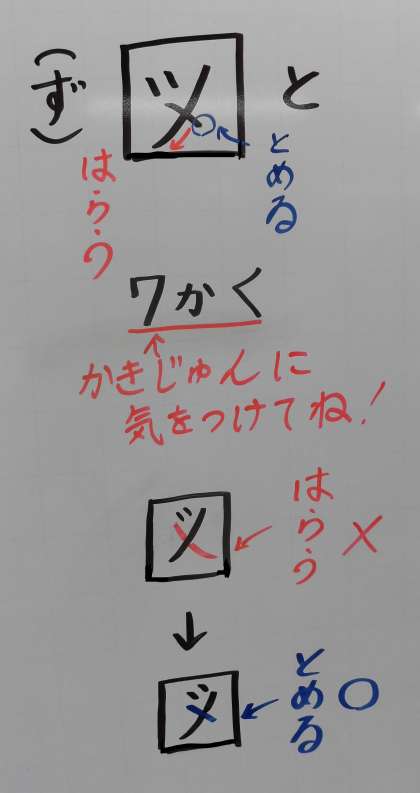 (ず) 図 と
はらう
とめる
7かく
かきじゅんに
気をつけてね!
図 ← はらう ×
↓
図 ← とめる ○